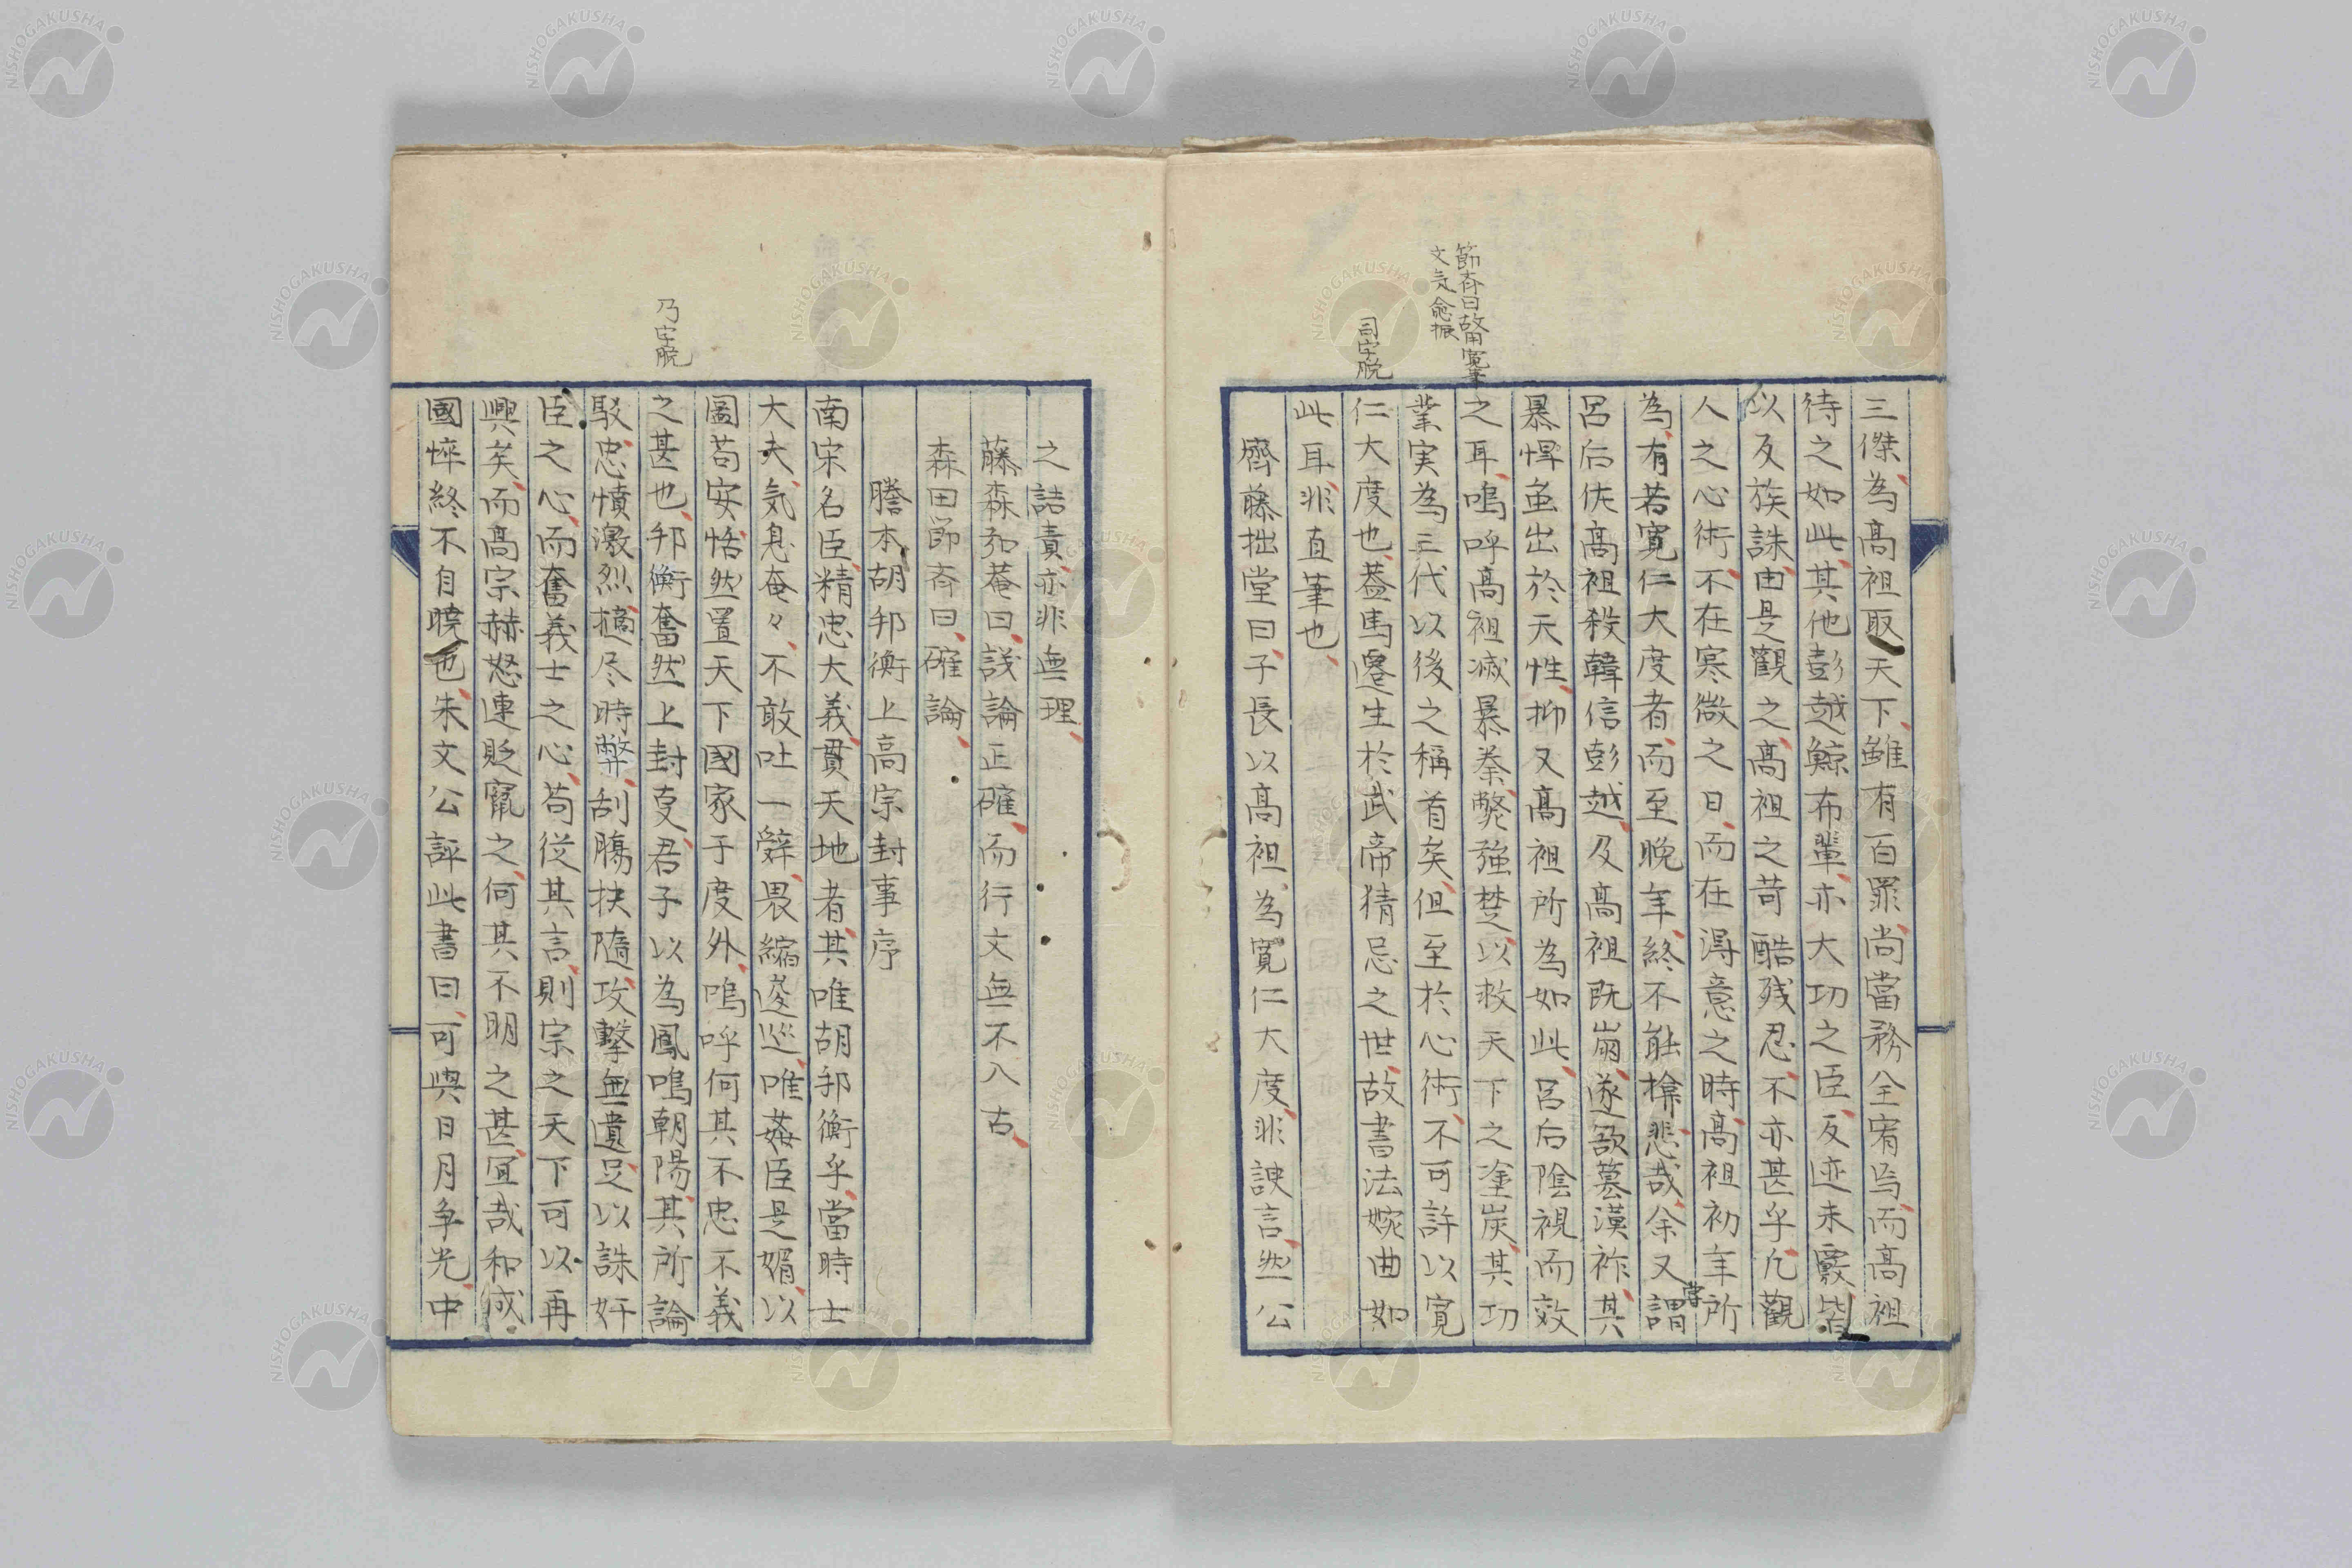 三傑為高祖取天下、雖有百罪、尚當務全宥焉、而高祖
待之如此、其他彭越鯨布輩、亦大功之臣、反迹未覈、皆
以反族誅、由是觀之、高祖之苛酷残忍、不亦甚乎、凡觀
人之心術、不在寒微之日、而在淂意之時、高祖初年所
為、有若寛仁大度者、而至晚年、終不能揜、悲哉、余又嘗謂
呂后佐高祖殺韓信彭越、及高祖既崩、遂欲簒漢祚、其
暴悍虽出於天性、抑又高祖所為如此、呂后陰視而效
之耳、嗚呼高祖滅暴秦、斃强楚、以救天下之塗炭、其功
業実為三代以後之稱首矣、但至於心術、不可許以寛
仁大度也、蓋馬遷生於武帝猜忌之世、故書法婉曲如
此耳、非直筆也、
齊藤拙堂曰、子長以高祖為寛仁大度、非諛言、然公
節斉曰故用寛筆
文気愈振
司字脱
之詰責、亦非無理、
藤森弘菴曰、議論正確、而行文無不入古、
森田節斉曰、確論、
謄本胡邦衡上高宗封事序
南宋名臣、精忠大義、貫天地者、其唯胡邦衡乎、當時士
大夫、気息奄々、不敢吐一辭、畏縮逡巡、唯姦臣是媚、以
圖苟安、恬然置天下國家于度外、嗚呼何其不忠不義
之甚也、邦衡奮然上封叓、君子以為鳳鳴朝陽、其所論
駁、忠憤激烈、擿尽時弊、刮膓抉隨、攻擊無遺、足以誅奸
臣之心、而奮義士之心、苟従其言、則宗之天下可以再
興矣、而高宗赫怒連貶竄之、何其不明之甚、冝哉和成
國悴終不自曉也、朱文公評此書曰、可與日月争光、中
乃字脱